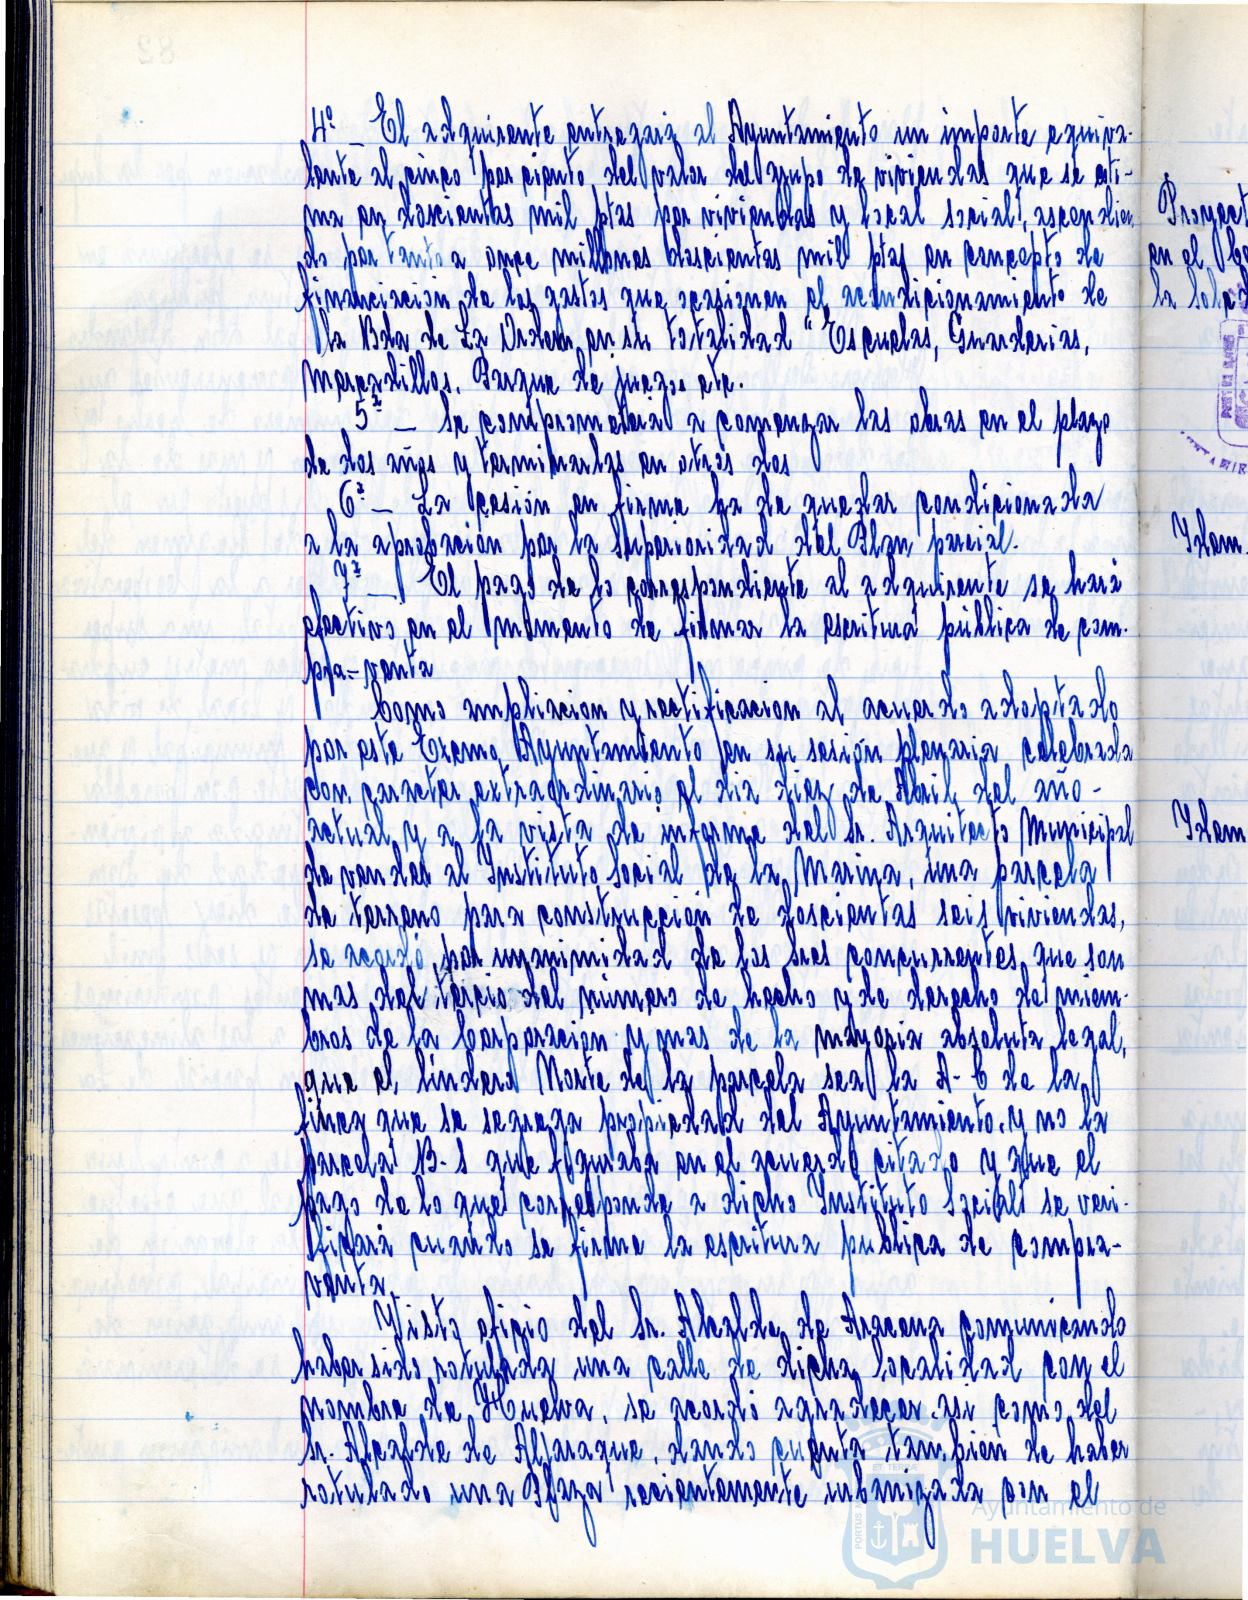 4º _ El adquirente entregará al Ayuntamiento un importe equiva-
lente al cinco por ciento del valor del grupo de viviendas que se esti-
ma en doscientas mil ptas por viviendas y local social, ascendien-
do por tanto a once millones doscientas mil ptas en concepto de
financiacion de los gastos que ocasionen el acondicionamiento de
la Bda de La Orden en su totalidad "Escuelas, Guarderias,
Mercadillos, Parque de juegos etc.
5ª _ Se comprometerá a comenzar las obras en el plazo
de dos años y terminarlas en otros dos
6ª _ La cesión en firme ha de quedar condicionada
a la aprobación por la Superioridad del Plan parcial.
7ª _ El pago de lo correspondiente al adquirente se hará
efectivo en el momento de firmar la escritura pública de com-
pra-venta
Como ampliacion y rectificacion al acuerdo adoptado
por este Excmo Ayuntamiento en su sesión plenaria celebrada
con caracter extraordinario el dia diez de Abril del año-
actual y a la vista de informe del Sr. Arquitecto Municipal
de vender al Instituto Social de la Marina, una parcela
de terreno para construcción de doscientas seis viviendas,
se acordó por unanimidad de los Sres concurrentes que son
mas del tercio del número de hecho y de derecho de miem-
bros de la Corporación y mas de la mayoria absoluta legal,
que el lindero Norte de la parcela sea la A-6 de la
finca que se segrega propiedad del Ayuntamiento, y no la
parcela B-1 que figuraba en el acuerdo citado y que el
pago de lo que corresponde a dicho Instituto Social se veri-
ficará cuando se firme la escritura publica de compra-
venta.
Visto oficio del Sr. Alcalde de Aracena comunicando
haber sido rotulada una calle de dicha localidad con el
nombre de Huelva, se acordó agradecer, asi como del
Sr. Alcalde de Aljaraque, dando cuenta tambien de haber
rotulado una Plaza recientemente urbanizada con el
Proyect
en el
Idem
Idem
Ayuntamiento de
HUELVA